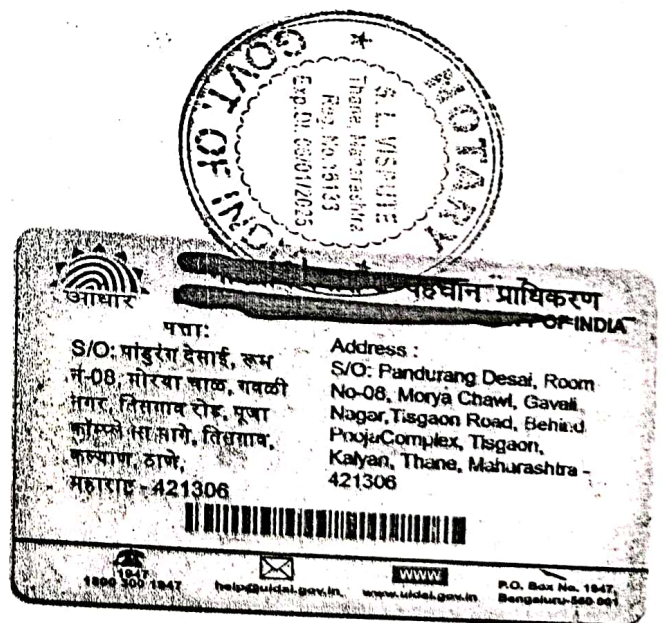 NOTARY
GOVT. OF IND
S. L. VISPUTE
Thane, Maharashtra
Reg. No. 16133
आधार
पहचान प्राधिकरण
OF INDIA
पत्ता:
S/O: पांडुरंग देसाई, रूम
नं-08, मोरया चाळ, गवळी
नगर, तिसगाव रोड, पूजा
मागे, तिसगाव,
कल्याण, ठाणे,
महाराष्ट्र - 421306
Address :
S/O: Pandurang Desai, Room
No-08, Morya Chawl, Gavali
Nagar,Tisgaon Road, Behind
PoojaComplex, Tisgaon,
Kalyan, Thane, Maharashtra -
421306
1947
1800 300 1947
help@uidai.gov.in
www
www.uidai.gov.in
P.O. Box No. 1947,
Bengaluru-560 001